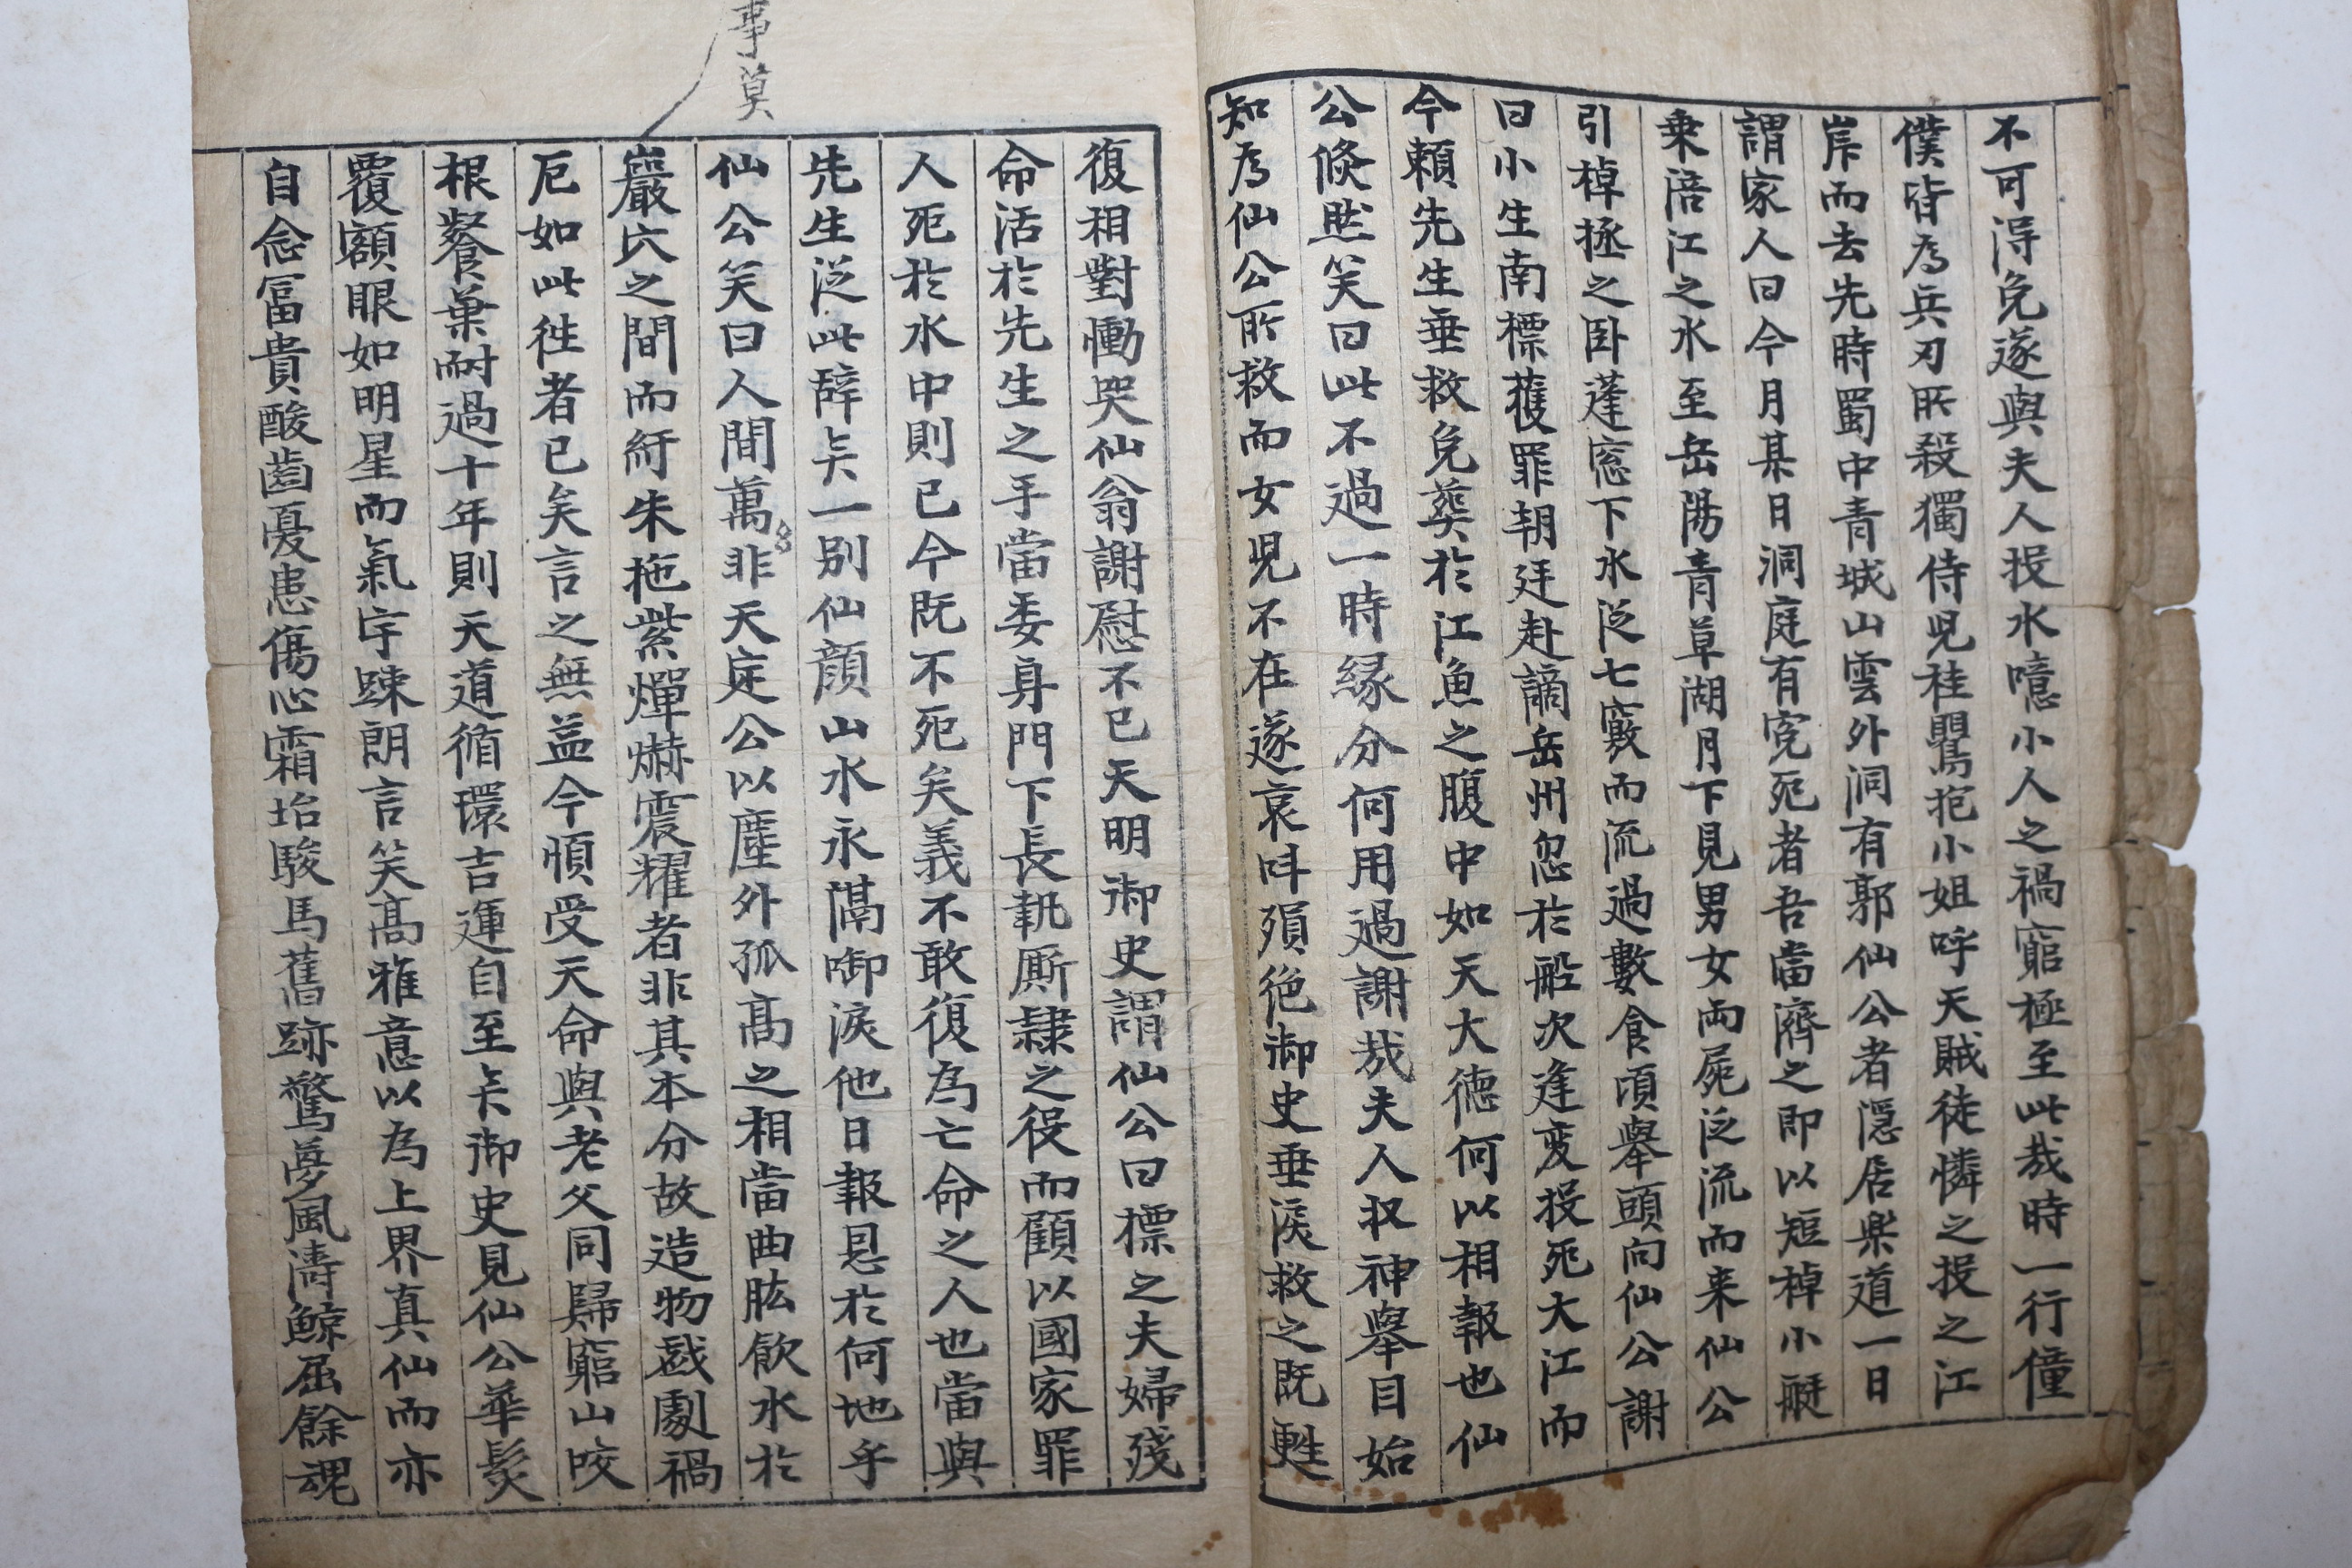 不可得免遂與夫人投水噫小人之禍窮極至此哉時一行僮
僕皆為兵刃所殺獨侍児桂鸎抱小姐呼天賊徒憐之投之江
岸而去先時蜀中青城山雲外洞有郭仙公者隱居楽道一日
謂家人曰今月某日洞庭有寃死者吾當濟之即以短棹小艇
乗涪江之水至岳陽青草湖月下見男女両屍泛流而来仙公
引棹拯之卧蓬窓下水泛七竅而流過數食頃舉頭向仙公謝
曰小生南標獲罪朝廷赴謫岳州忽於船次逢変投死大江而
今頼先生垂救免葬於江魚之腹中如天大德何以相報也仙
公倏然笑曰此不過一時縁分何用過謝哉夫人収神舉目始
知為仙公所救而女児不在遂哀呌殞絶御史垂淚救之既甦
復相對慟哭仙翁謝慰不已天明御史謂仙公曰標之夫婦殘
命活於先生之手當委身門下長執厮隷之役而顧以國家罪
人死於水中則已今既不死矣義不敢復為亡命之人也當與
先生泛此辞矣一別仙顔山水永隔啣淚他日報恩於何地乎
仙公笑曰人間萬非天定公以塵外孤髙之相當曲肱飲水於
事莫
巖穴之間而紆朱拖紫燀爀震耀者非其本分故造物戱劇禍
厄如此徃者已矣言之無益今順受天命與老父同歸窮山咬
根餐菓耐過十年則天道循環吉運自至矣御史見仙公華髮
覆額眼如明星而氣宇踈朗言笑髙雅意以為上界真仙而亦
自念冨貴酸齒憂患傷心霜坮駿馬舊跡驚夢風濤鯨屈餘魂